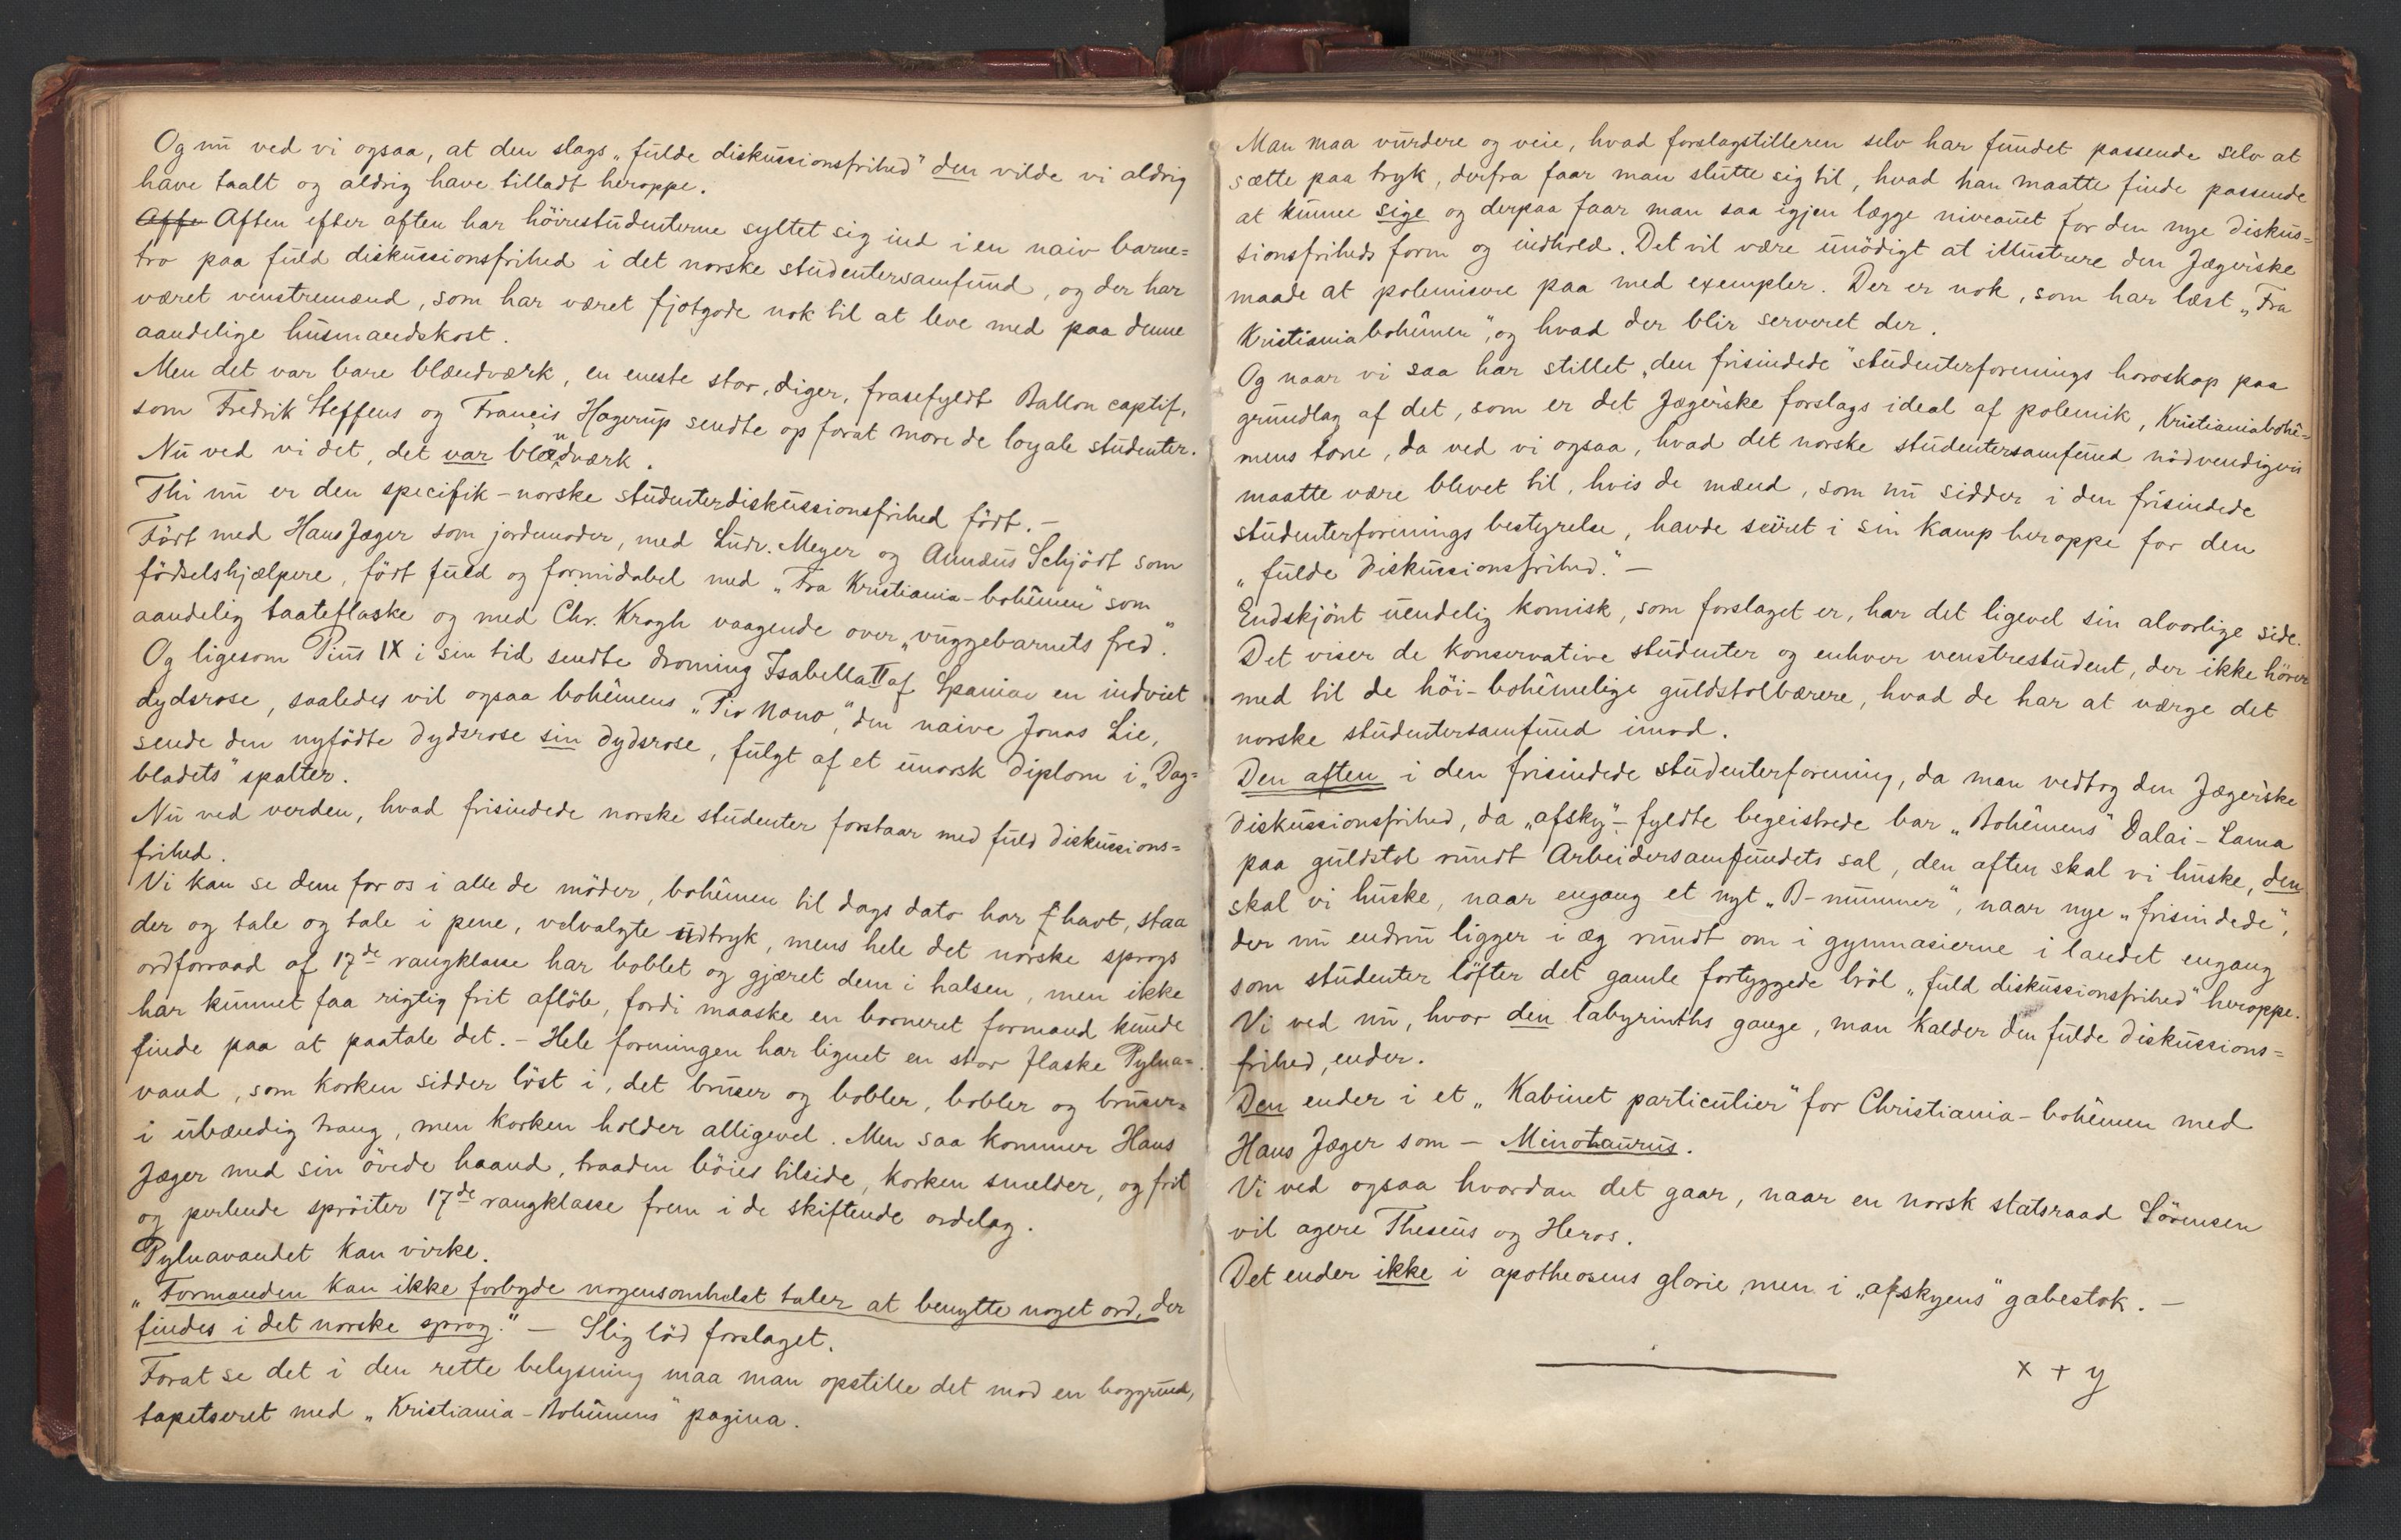 Og nu ved vi ogsaa, at den slags „fulde diskussionsfrihed" den vilde vi aldrig
have taalt og aldrig have tilladt heroppe.
Affe Aften efter aften har höirestudenterne syltet sig ind i en naiv barne=
tro paa fuld diskussionsfrihed i det norske studentersamfund, og der har
været venstremænd, som har været fjotgode nok til at leve med paa denne
aandelige husmandskost.
Men det var bare blændværk, en eneste stor, diger, frasefyldt Ballon captif,
som Fredrik Steffens og Francis Hagerup sendte op forat more de loyale studenter.
Nu ved vi det, det var blændværk.
Thi nu er den specifik-norske studenterdiskussionsfrihed födt. —
Födt med Hans Jæger som jordmoder, med Ludv. Meyer og Annæus Schjödt som
födselshjælpere, födt fuld og formidabel med „Fra Kristiania-bohêmen" som
aandelig taateflaske og med Chr. Krogh vaagende over „vuggebarnets fred".
Og ligesom Pius IX i sin tid sendte droning Isabella II af Spanien en indviet
dydsrose, saaledes vil ogsaa bohêmens „Pio Nono", den naive Jonas Lie,
sende den nyfödte dydsrose sin dydsrose, fulgt af et unorsk diplom i „Dag=
bladets" spalter.
Nu ved verden, hvad frisindede norske studenter forstaar med fuld diskussions=
frihed.
Vi kan se dem for os i alle de möder, bohêmen til dags dato har havt, staa
der og tale og tale i pene, velvalgte udtryk, mens hele det norske sprogs
ordforraad af 17de rangklasse har boblet og gjæret dem i halsen, men ikke
har kunnet faa rigtig frit aflöb, fordi maaske en borneret formand kunde
finde paa at paatale det. – Hele forningen har lignet en stor flaske Pylna=
vand, som korken sidder löst i, det bruser og bobler, bobler og bruser
i ubændig trang, men korken holder alligevel. Men saa kommer Hans
Jæger med sin övede haand, traaden böies tilside, korken smelder, og frit
og perlende spröiter 17de rangklasse frem i de skiftende ordelag.
Pylnavandet kan virke.
„Formanden kan ikke forbyde nogensomhelst taler at benytte noget ord, der
findes i det norske sprog." — Slig löd forslaget.
Forat se det i den rette belysning maa man opstille det mod en baggrund,
tapetseret med „Kristiania-Bohêmens" pagina.
Man maa vurdere og veie, hvad forslagstilleren selv har fundet passende selv at
sætte paa tryk, derfra faar man slutte sig til, hvad han maatte finde passende
at kunne sige og derpaa faar man saa igjen lægge niveauet for den nye diskus=
sionsfriheds form og indhold. Det vil være unödigt at illustrere den Jægerske
maade at polemisere paa med exempler. Der er nok, som har læst „Fra
Kristianiabohêmen", og hvad der blir serveret der.
Og naar vi saa har stillet „den frisindede" studenterforenings horoskop paa
grundlag af det, som er det Jægerske forslags ideal af polemik, Kristianiabohê=
mens tone, da ved vi ogsaa, hvad det norske studentersamfund nödvendigvis
maatte være blevet til, hvis de mænd, som nu sidder i den frisindede
studenterforenings bestyrelse, havde seiret i sin kamp heroppe for den
„fulde diskussionsfrihed." —
Endskjönt uendelig komisk, som forslaget er, har det ligevel sin alvorlige side.
Det viser de konservative studenter og enhver venstrestudent, der ikke hörer
med til de höi-bohêmelige guldstolbærere, hvad de har at værge det
norske studentersamfund imod.
Den aften i den frisindede studenterforening, da man vedtog den Jægerske
diskussionsfrihed, da „afsky"-fyldte begeistrede bar „Bohêmens" Dalai-Lama
paa guldstol rundt Arbeidersamfundets sal, den aften skal vi huske, den
skal vi huske, naar engang et nyt „B-nummer", naar nye „frisindede",
der nu endnu ligger i æg rundt om i gymnasierne i landet engang
som studenter löfter det gamle fortyggede bröl „fuld diskussionsfrihed" heroppe.
Vi ved nu, hvor den labyrinths gange, man kalder den fulde diskussions=
frihed, ender.
Den ender i et „Kabinet particulier" for Christiania-bohêmen med
Hans Jæger som — Minotaurus.
Vi ved ogsaa hvordan det gaar, naar en norsk statsraad Sörensen
vil agere Theseus og Heros.
Det ender ikke i apotheosens glorie men i „afskyens" gabestok. —
x + y